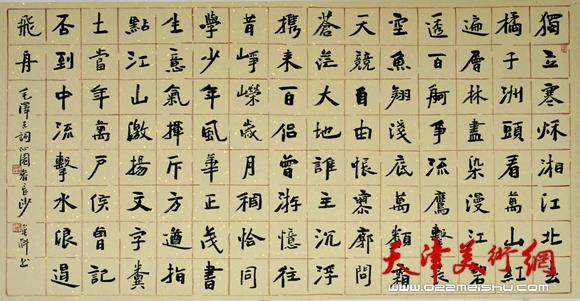 獨立寒秋湘江北去
橘子洲頭看萬山紅
遍層林盡染漫江
透百舸爭流鷹擊長
空魚翔淺底萬類霜
天競自由悵寥廓問
蒼茫大地誰主沉浮
攜来百侶曾游憶往
昔崢嶸歲月稠恰同
學少年風華正茂書
生意氣揮斥方遒指
點江山激揚文字糞
土當年萬戶侯曾記
否到中流擊水浪遏
飛舟
毛澤東詞沁園春長沙
天津美術網
www.022meishu.com